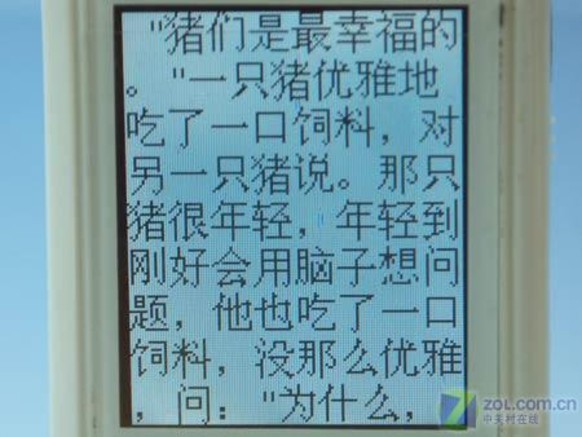 "猪们是最幸福的
。"一只猪优雅地
吃了一口饲料，对
另一只猪说。那只
猪很年轻，年轻到
刚好会用脑子想问
题，他也吃了一口
饲料，没那么优雅
，问："为什么，
zol.com.cn
中关村在线